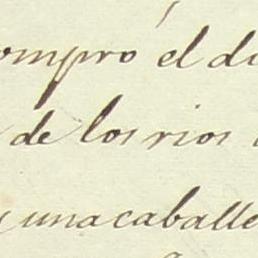 ompró el di
de los rios
y una caballe